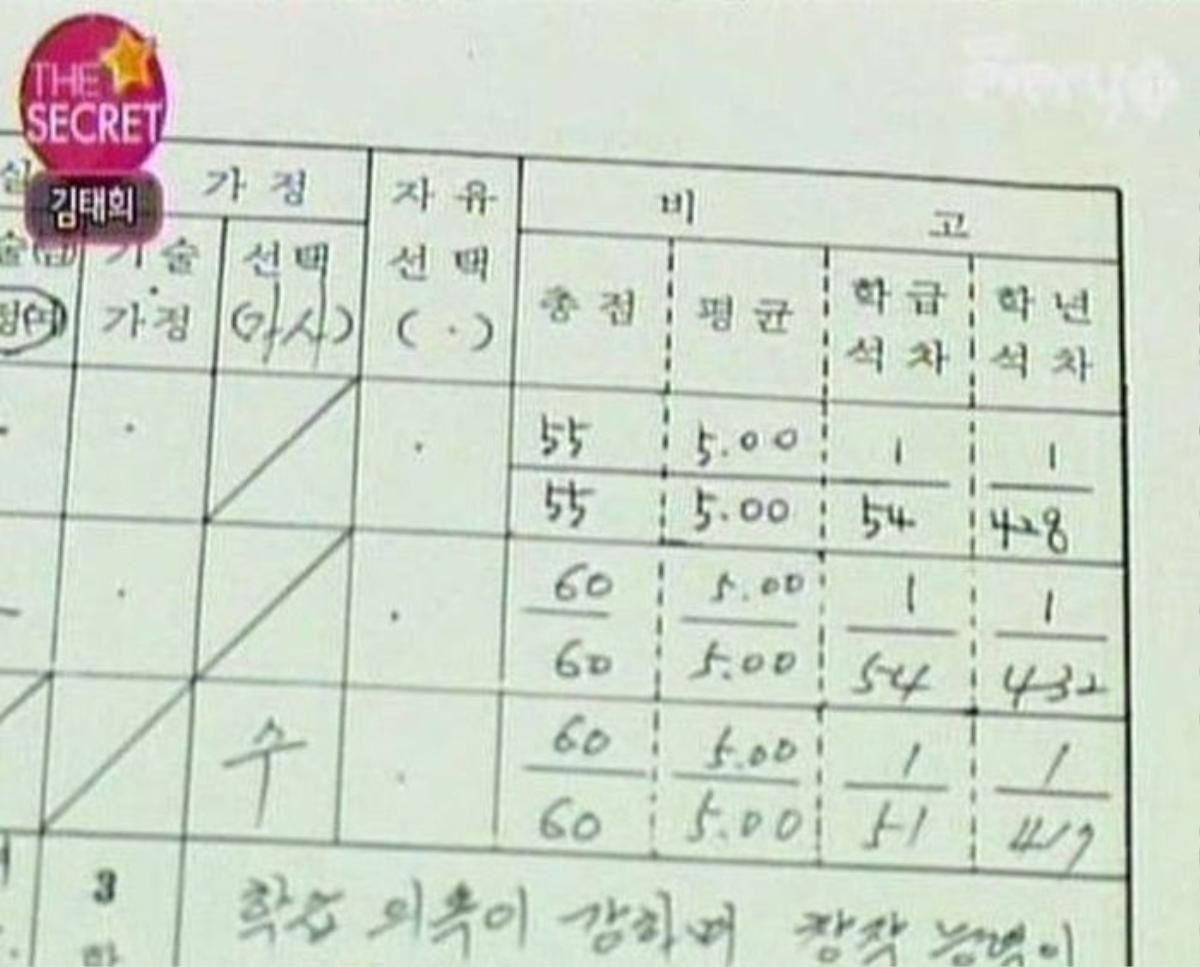 THE
SECRET
김태희
가 정
자 유
선 택
( · )
비 고
기 술
가 정
선 택
(가사)
총 점
평 균
학 급
석 차
학 년
석 차
55 5.00 1 1
55 5.00 54 428
60 5.00 1 1
60 5.00 54 432
수
60 5.00 1 1
60 5.00 51 417
3
학습 의욕이 강하며